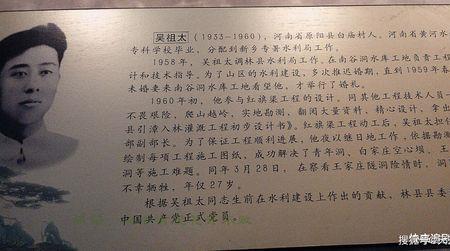 吴祖太（1933-1960），河南省原阳县白庙村人，河南省黄河水
专科学校毕业，分配到新乡专署水利局工作。
1958年，吴祖太调林县水利局工作。在南谷洞水库工地负责工程
计和技术指导。为了山区的水利建设，多次推迟婚期，直到1959年春
未婚妻来南谷洞水库工地看望他，才举行了婚礼。
1960年初，他参与红旗渠工程的设计，同其他工程技术人员一
不畏艰险，爬山越岭，实地勘测，翻阅大量资料，精心设计，拿出
县引漳入林灌溉工程初步设计书》。红旗渠工程动工后，吴祖太担任
部副部长。为了保证工程顺利进展，他夜以继日地工作，依据勘测
绘制每项工程施工图纸，成功解决了青年洞、白家庄空心坝、王
洞等施工难题。同年3月28日，在察看王家庄隧洞险情时，洞
不幸牺牲，年仅27岁。
根据吴祖太同志生前在水利建设上作出的贡献，林县县委
中国共产党正式党员。